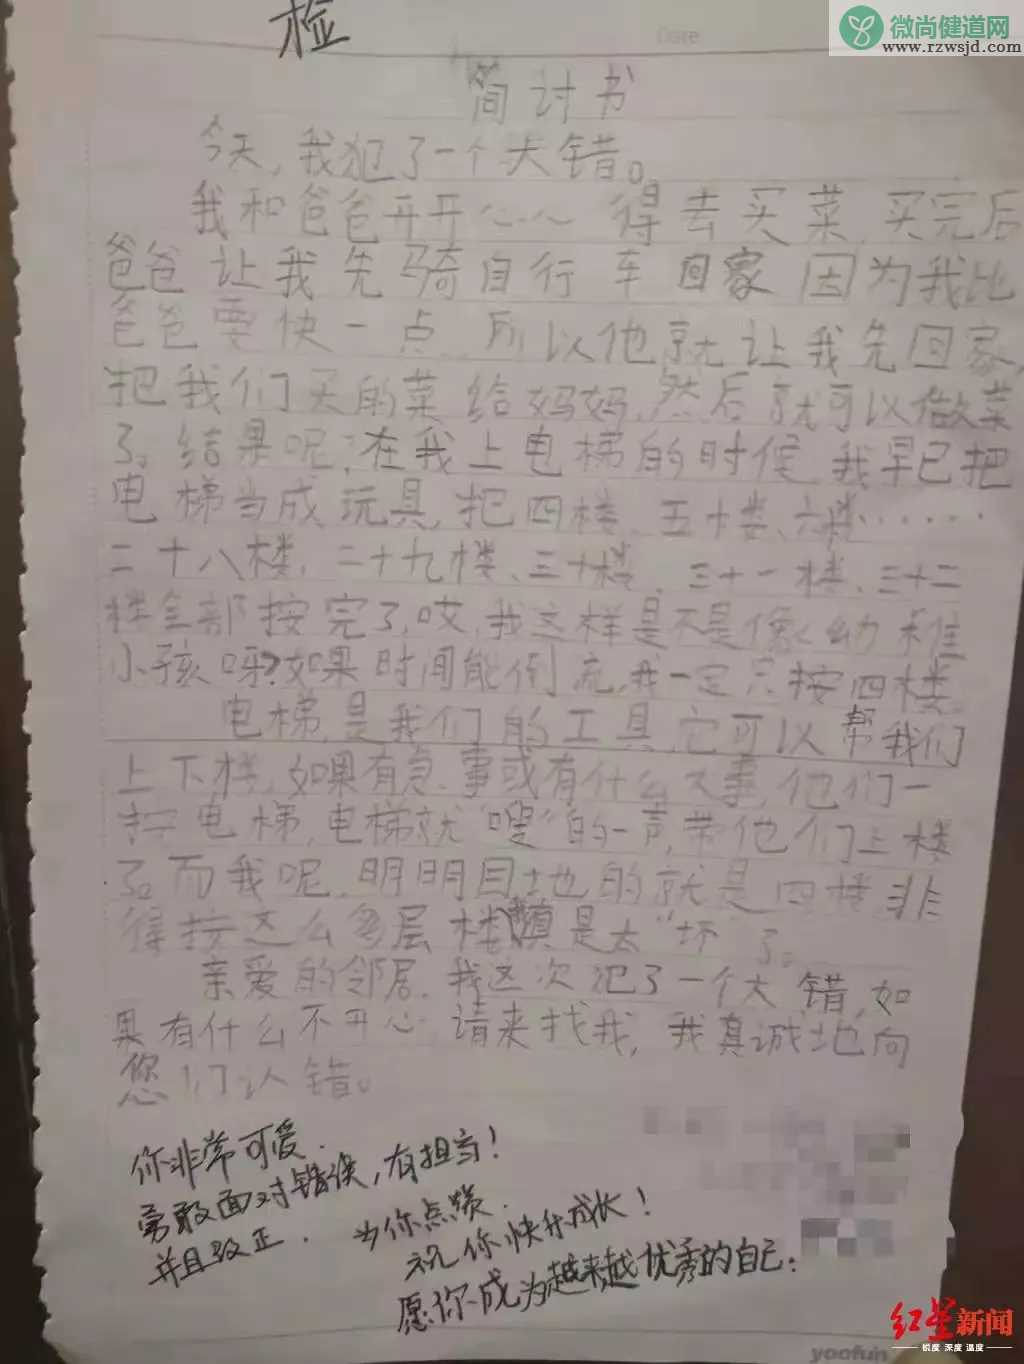 微尚健道网
www.rzwsjd.com
检
Date
简讨书
今天,我犯了一个大错。
我和爸爸开开心心得去买菜,买完后
爸爸让我先骑自行车回家因为我比
爸爸要快一点,所以他就让我先回家,
把我们买的菜给妈妈,然后就可以做菜
了。结果呢,在我上电梯的时候,我早已把
电梯当成玩具,把四楼、五楼、六楼……
二十八楼,二十九楼、三十楼、三十一楼、三十二
楼全部按完了,哎,我这样是不是像幼稚
小孩呀?如果时间能倒流,我一定只按四楼。
电梯,是我们的工具,它可以帮我们
上下楼,如果有急事或有什么大事,他们一
按电梯,电梯就“嗖”的一声,带他们上楼
了。而我呢,明明目地的就是四楼,非
得按这么多层楼,真是太“坏”了。
亲爱的邻居,我这次犯了一个大错,如
果有什么不开心,请来找我,我真诚地向
您们认错。
你非常可爱.
勇敢面对错误,有担当!
并且改正. 为你点赞.
祝你快升成长!
愿你成为越来越优秀的自己:
红星新闻
锐度 深度 温度
yoofun